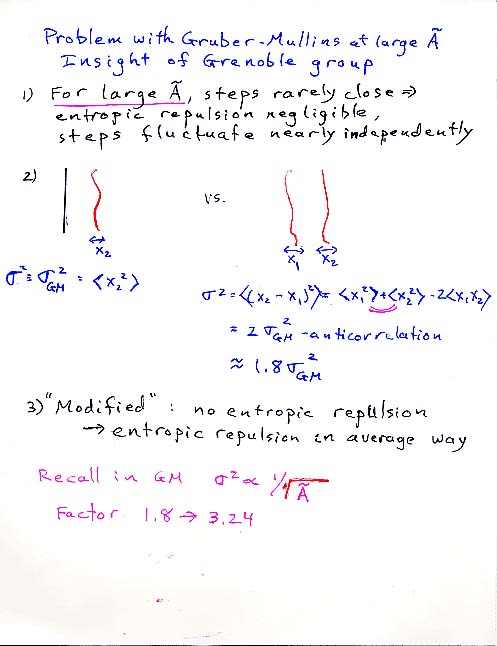 Problem with Gruber-Mullins at large Ã
Insight of Grenoble group
1) For large Ã, steps rarely close ⇒
entropic repulsion negligible,
steps fluctuate nearly independently
2)
vs.
x₂
x₁ x₂
σ² ≡ σ²_GM = <x₂²>
σ² = <(x₂ - x₁)²> = <x₁²> + <x₂²> - 2<x₁x₂>
= 2σ²_GM - anticorrelation
≈ 1.8 σ²_GM
3) "Modified" : no entropic repulsion
→ entropic repulsion in average way
Recall in GM σ² ∝ 1/√Ã
Factor 1.8 → 3.24